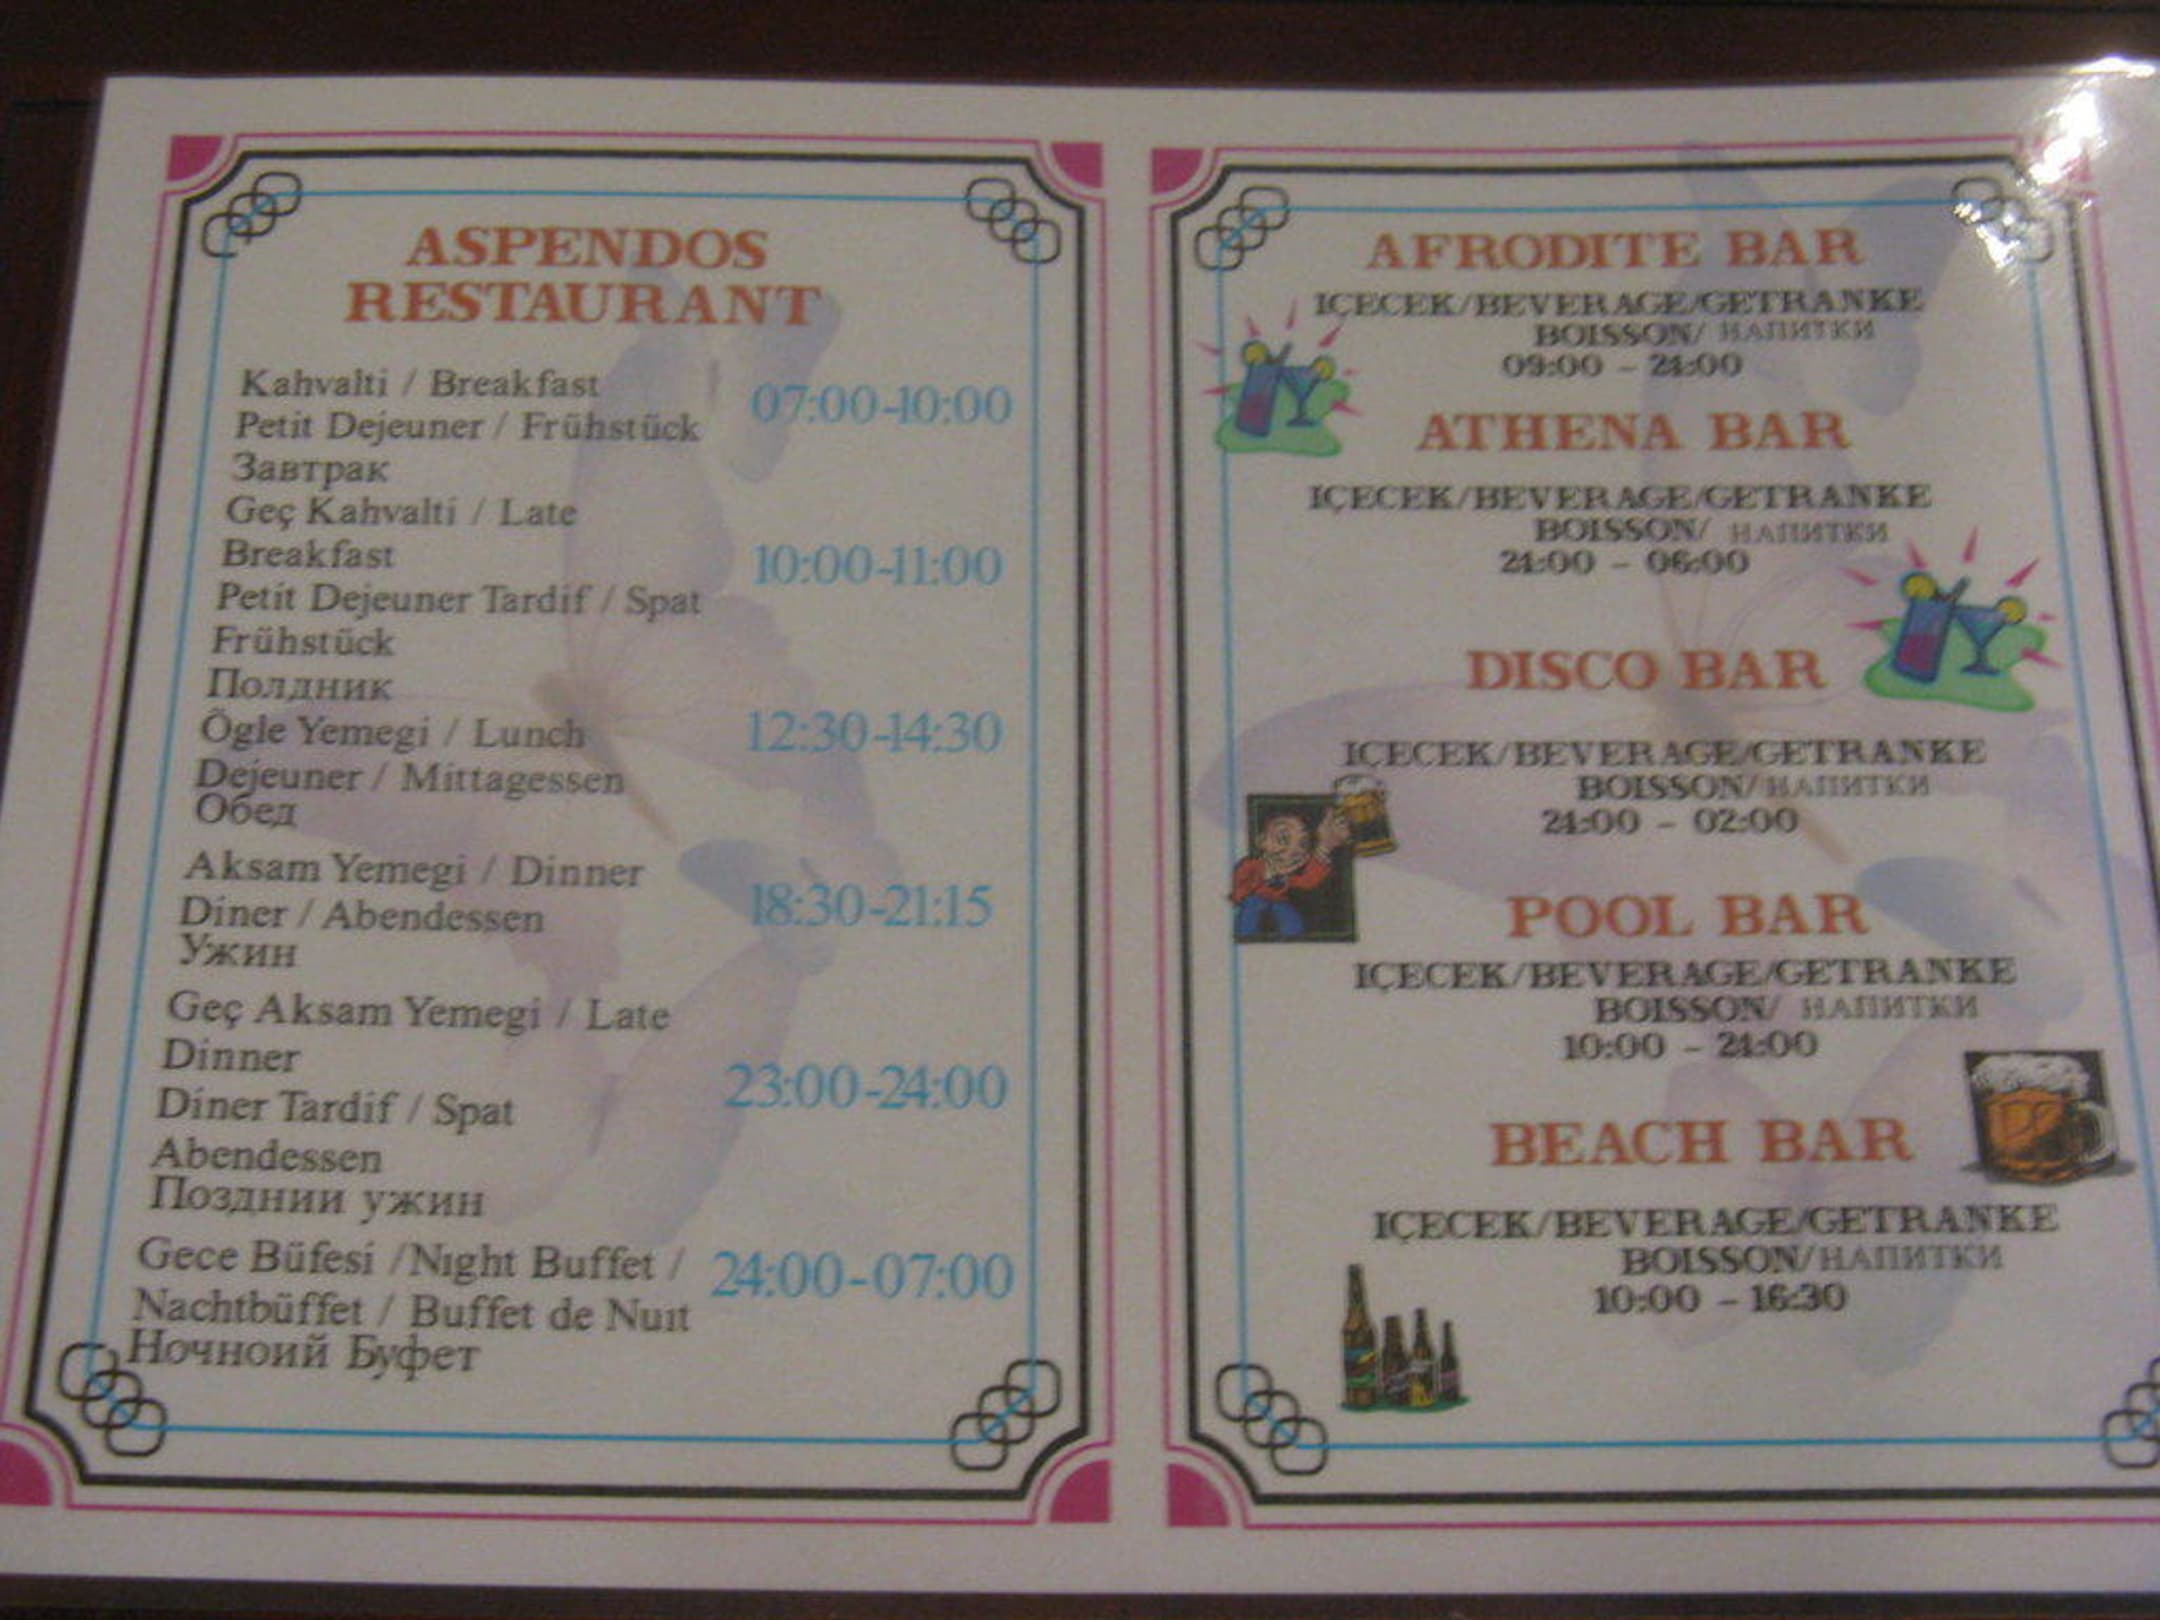 ASPENDOS
RESTAURANT
Kahvalti / Breakfast
Petit Dejeuner / Frühstück
Завтрак
07:00-10:00
Geç Kahvalti / Late
Breakfast
Petit Dejeuner Tardif / Spat
Frühstück
Полдник
10:00-11:00
Ögle Yemegi / Lunch
Dejeuner / Mittagessen
Обед
12:30-14:30
Aksam Yemegi / Dinner
Diner / Abendessen
Ужин
18:30-21:15
Geç Aksam Yemegi / Late
Dinner
Diner Tardif / Spat
Abendessen
Позднии ужин
23:00-24:00
Gece Büfesi /Nıght Buffet /
Nachtbüffet / Buffet de Nuıt
Ночноий Буфет
24:00-07:00
AFRODITE BAR
IÇECEK/BEVERAGE/GETRANKE
BOISSON/ НАПИТКИ
09:00 - 24:00
ATHENA BAR
IÇECEK/BEVERAGE/GETRANKE
BOISSON/ НАПИТКИ
24:00 - 06:00
DISCO BAR
IÇECEK/BEVERAGE/GETRANKE
BOISSON/ НАПИТКИ
24:00 - 02:00
POOL BAR
IÇECEK/BEVERAGE/GETRANKE
BOISSON/ НАПИТКИ
10:00 - 24:00
BEACH BAR
IÇECEK/BEVERAGE/GETRANKE
BOISSON/НАПИТКИ
10:00 - 16:30